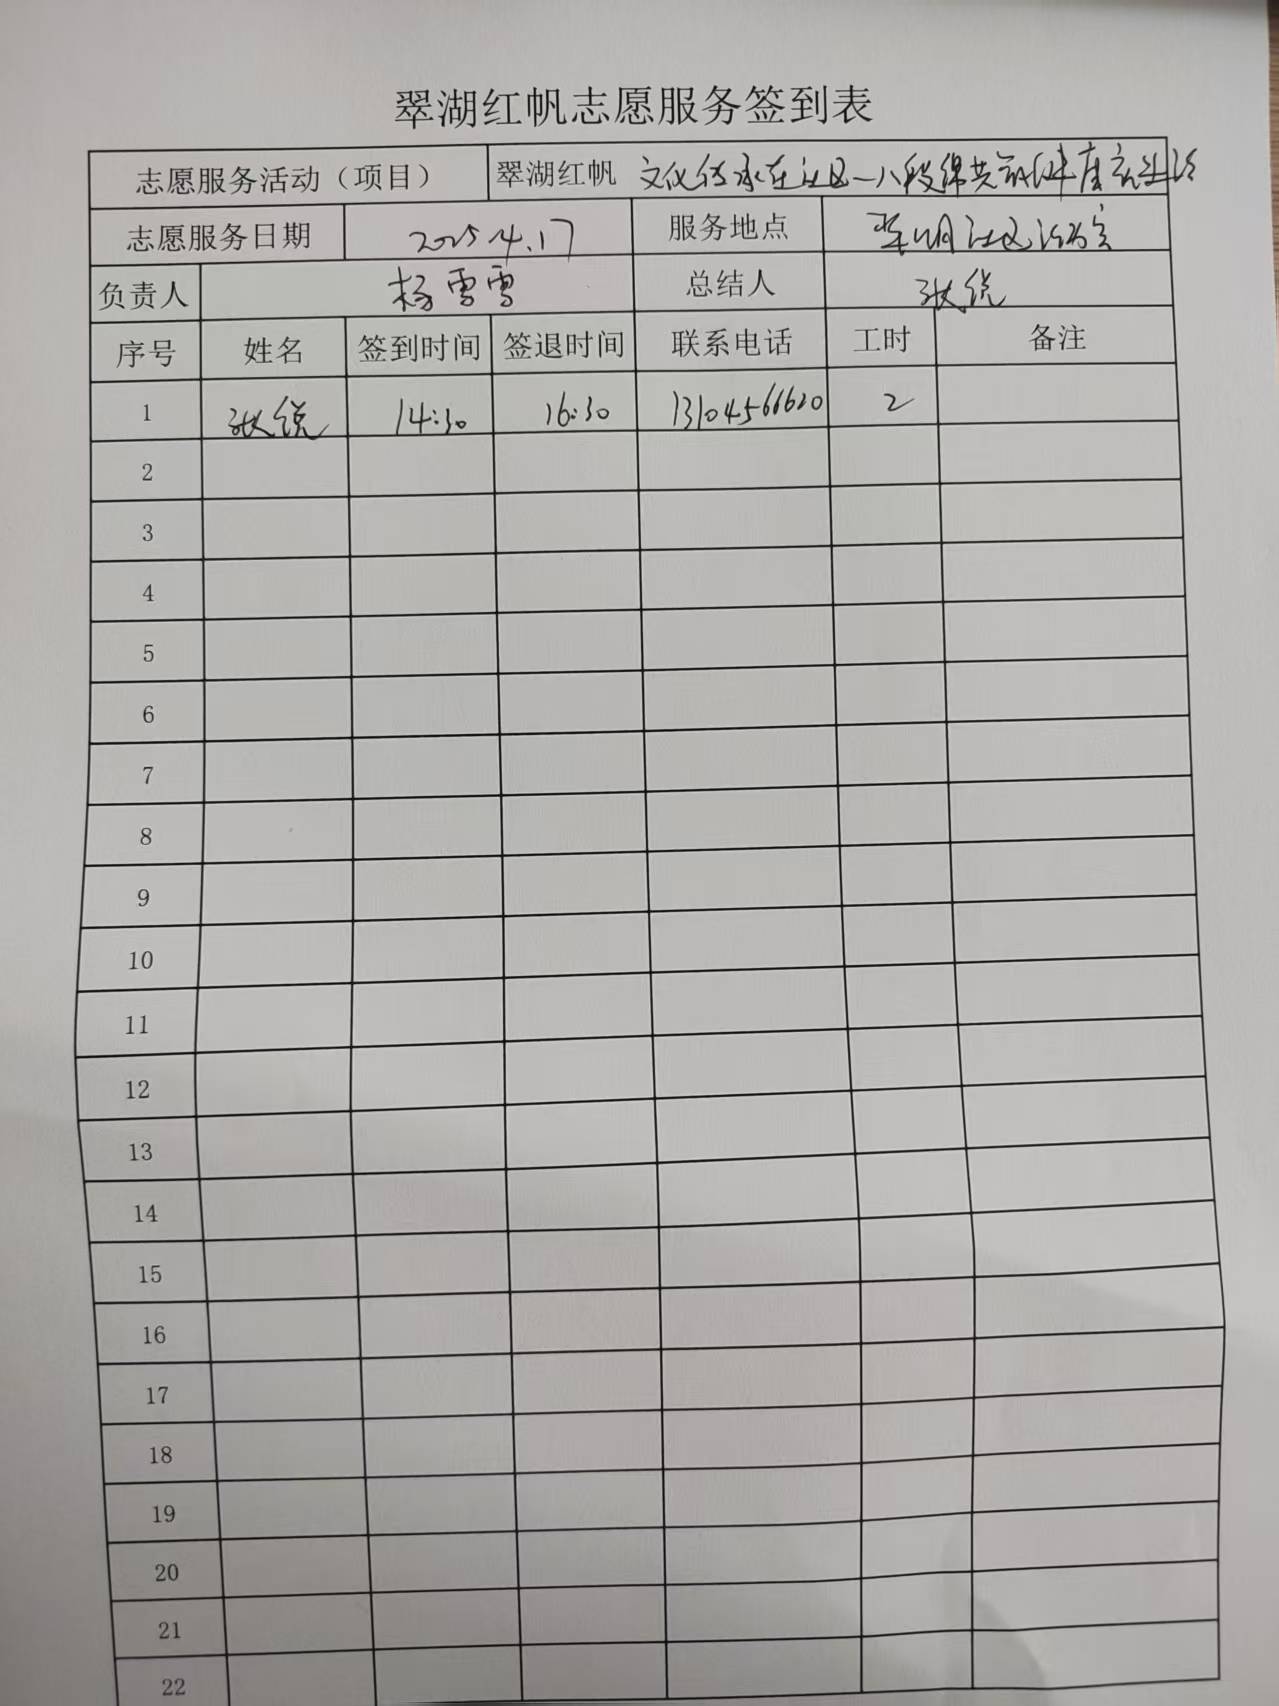 翠湖红帆志愿服务签到表
志愿服务活动（项目） 翠湖红帆 文化传承在社区—八段锦共筑健康新生活
志愿服务日期 2025.4.17 服务地点 翠湖社区活动室
负责人 杨雪雪 总结人 张悦
序号 姓名 签到时间 签退时间 联系电话 工时 备注
1 张悦 14:30 16:30 13104566620 2
2
3
4
5
6
7
8
9
10
11
12
13
14
15
16
17
18
19
20
21
22